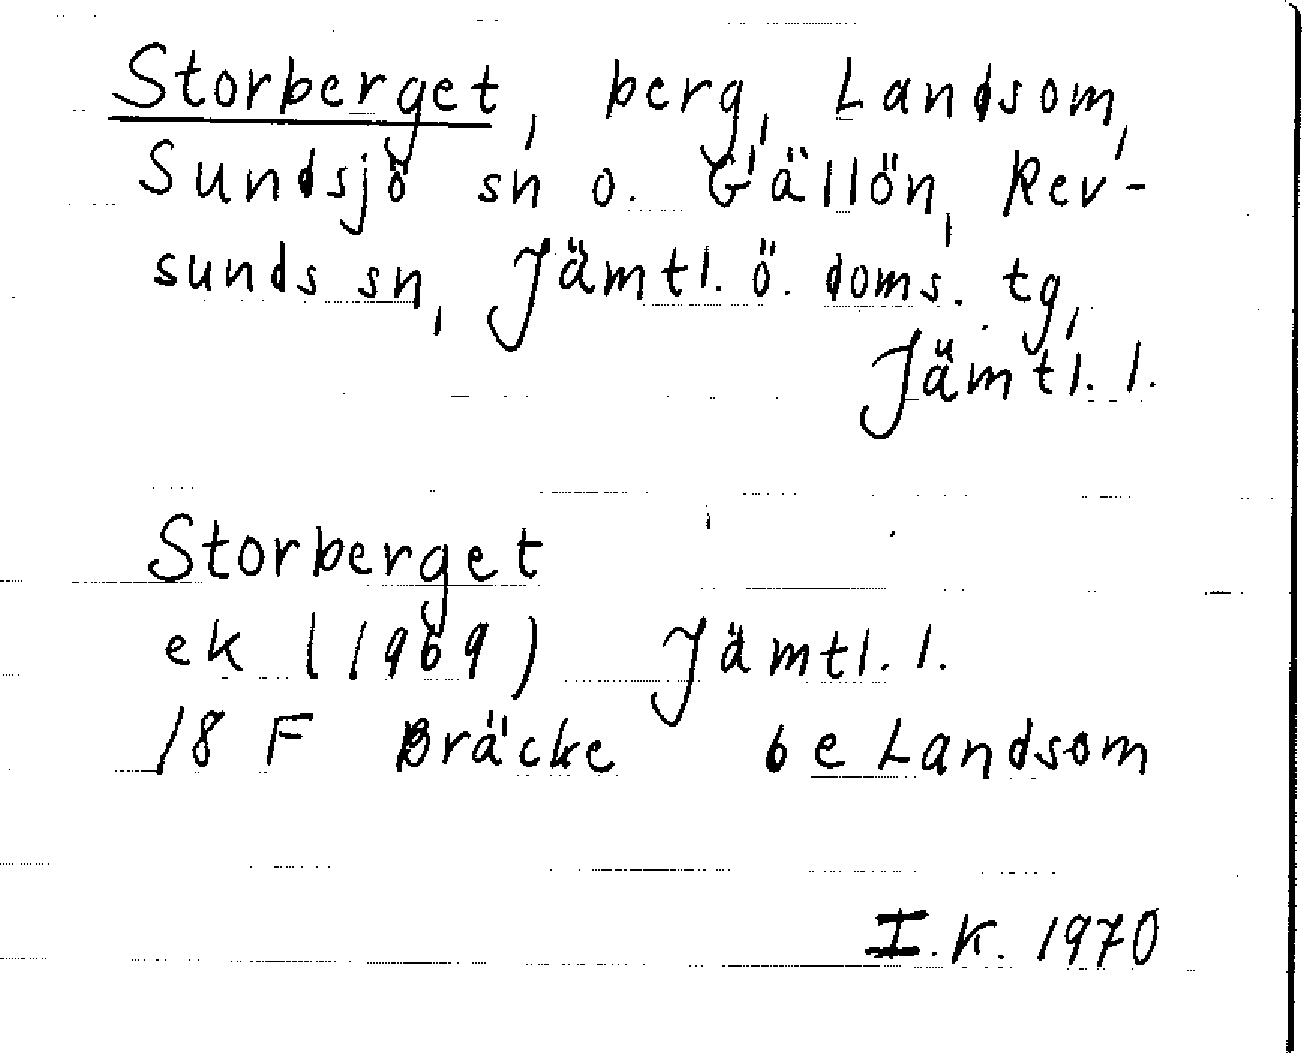 Storberget, berg, Landsom,
Sundsjö sn o. Gällön, Rev-
sunds sn, Jämtl. ö. doms. tg,
Jämtl. l.
Storberget
ek (1969) Jämtl. l.
18 F Bräcke 6e Landsom
I.K. 1970